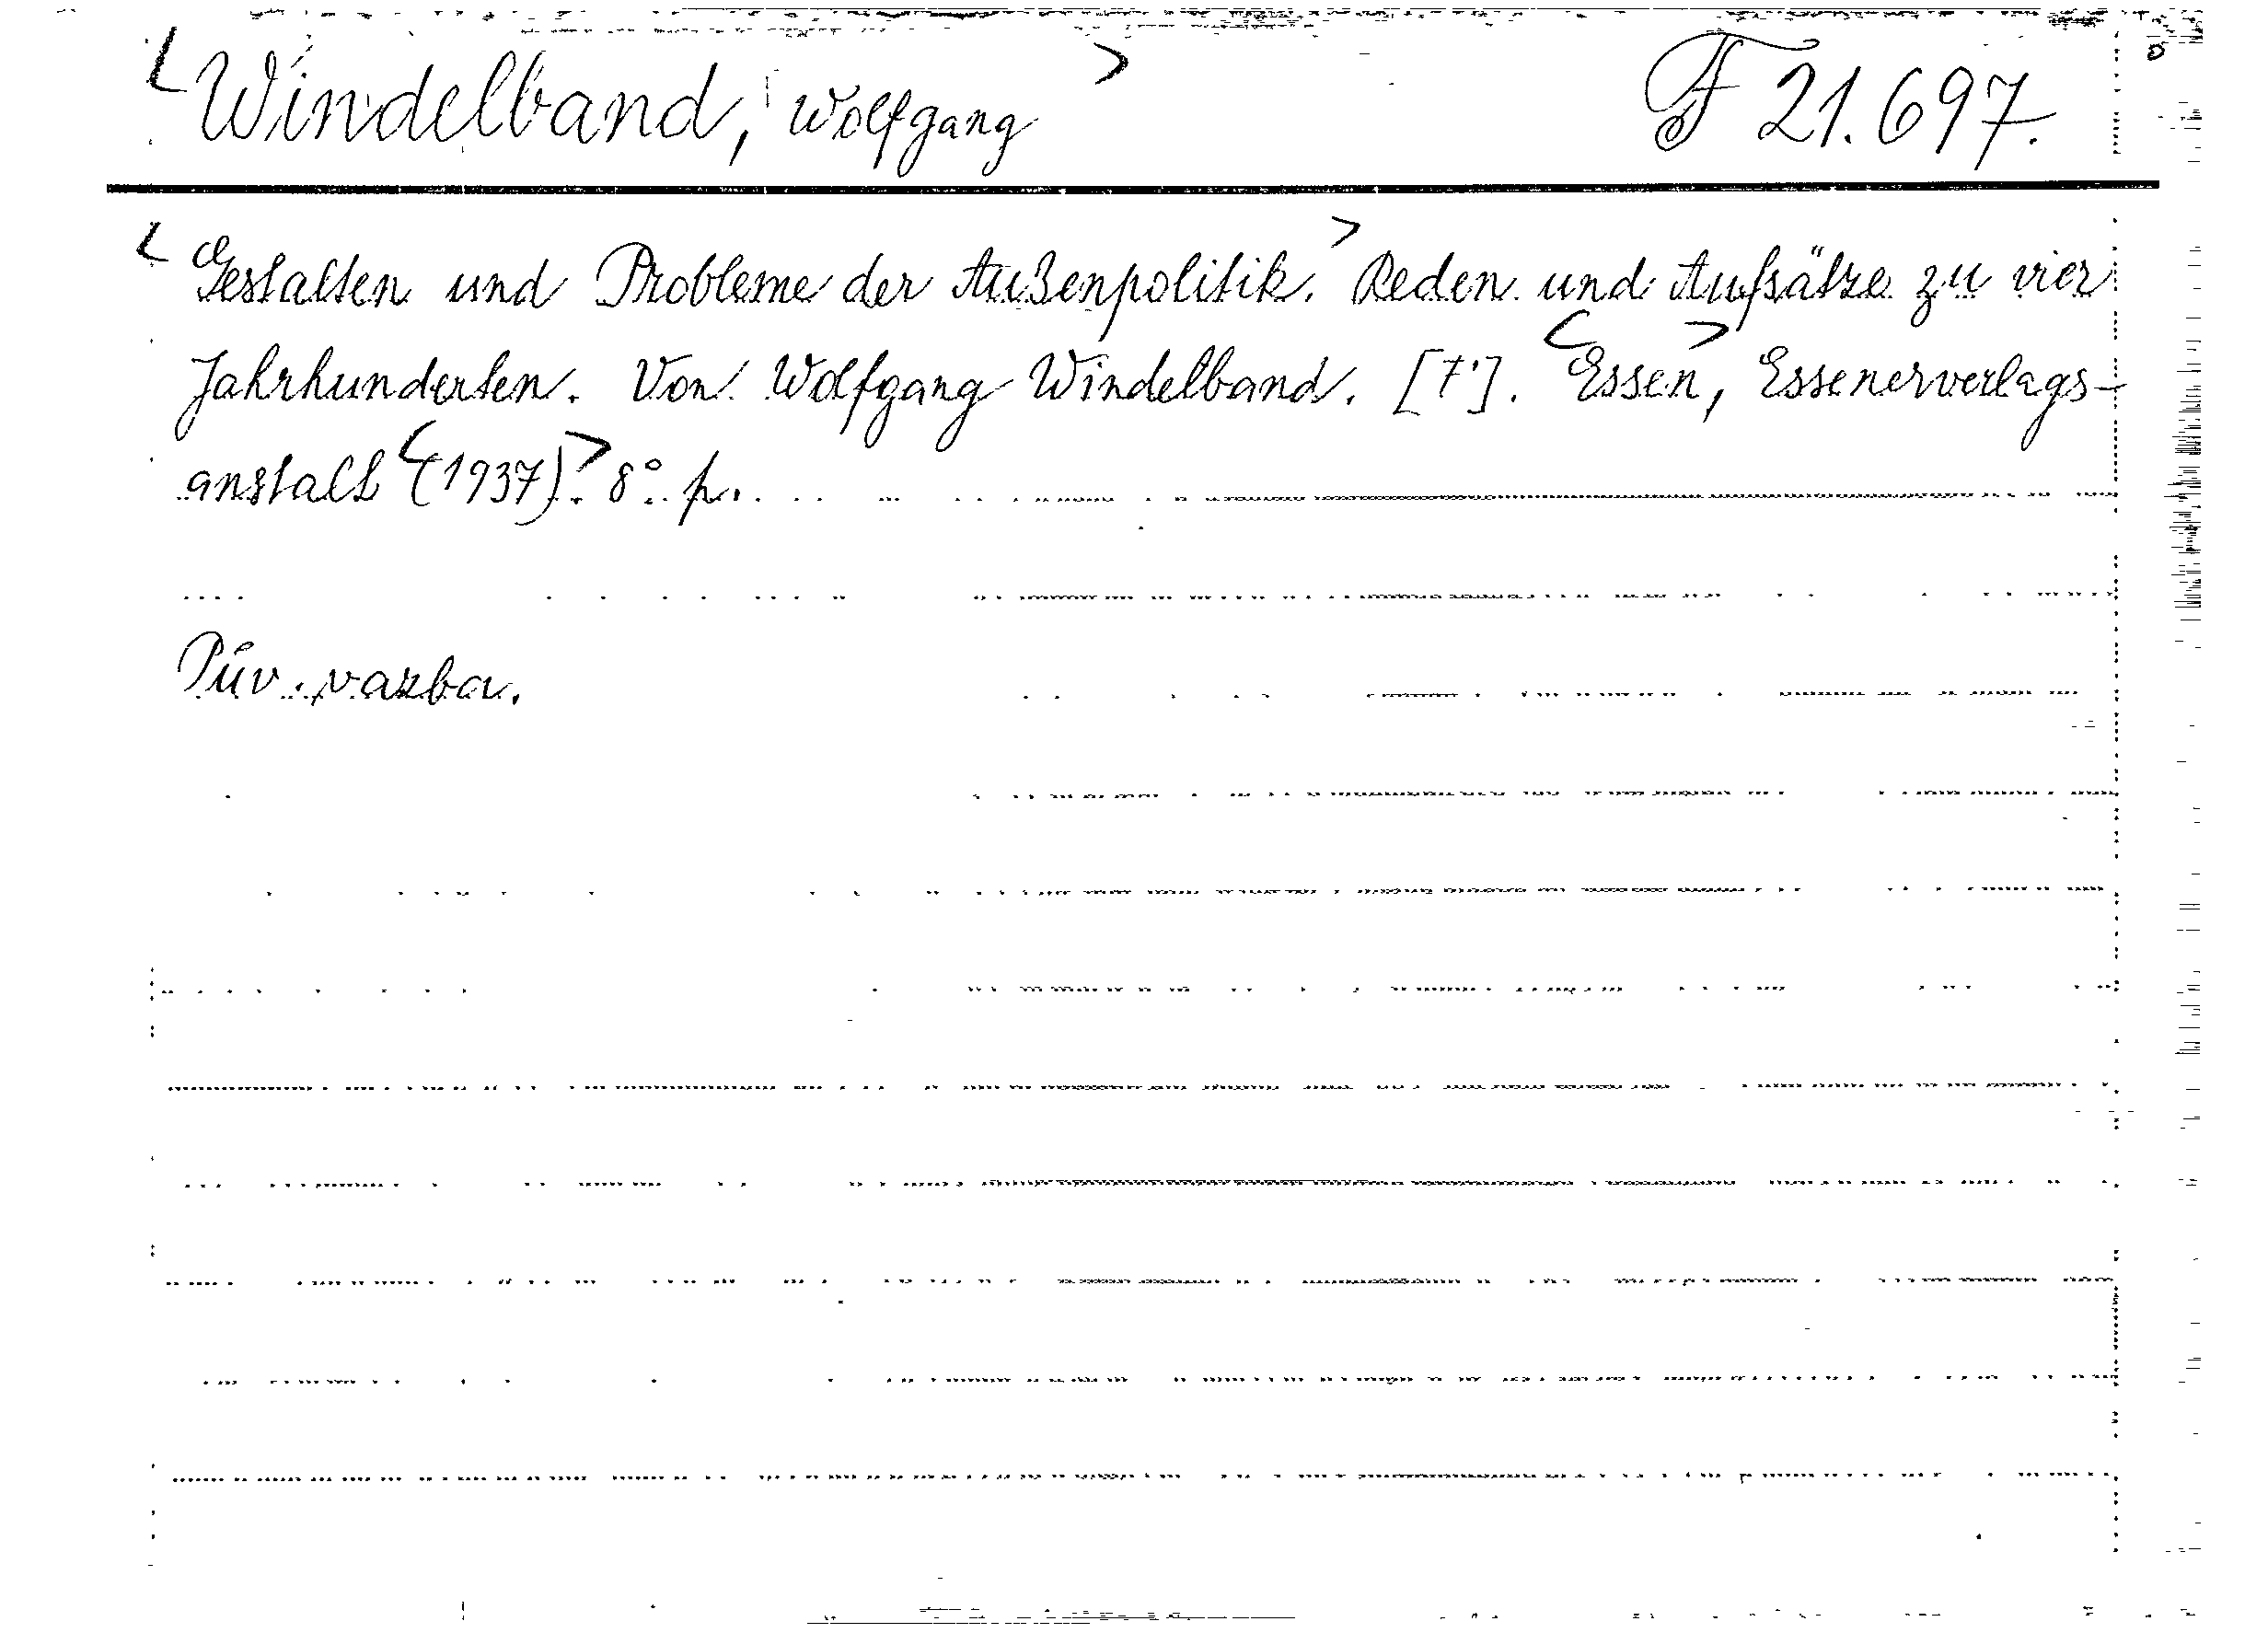 <Windelband, Wolfgang> F 21.697.
<Gestalten und Probleme der Außenpolitik.> Reden und Aufsätze zu vier
Jahrhunderten. Von Wolfgang Windelband. [7']. <Essen>, Essenerverlags-
anstalt <(1937)>. 8°. p.
Pův. vazba.